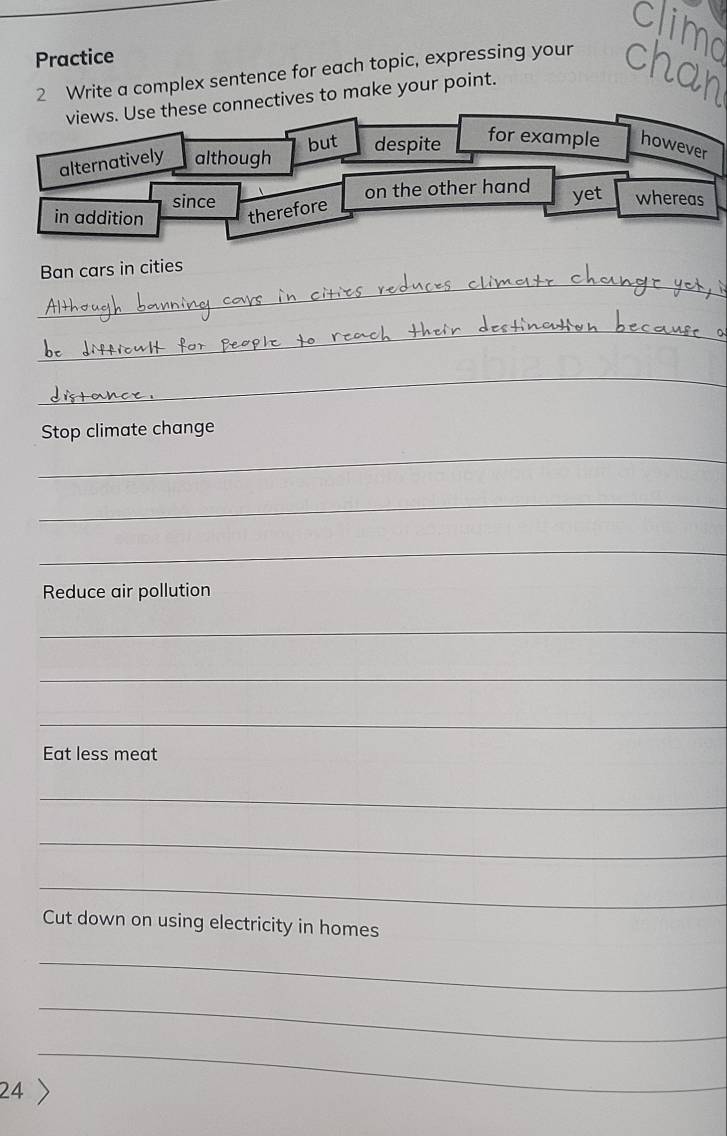 Practice
2 Write a complex sentence for each topic, expressing your
views. Use these connectives to make your point.
alternatively although but despite for example however
in addition since therefore on the other hand yet whereas
Ban cars in cities
Although banning cars in cities reduces climate change yet,
be difficult for people to reach their destination because
distance.
Stop climate change
Reduce air pollution
Eat less meat
Cut down on using electricity in homes
24